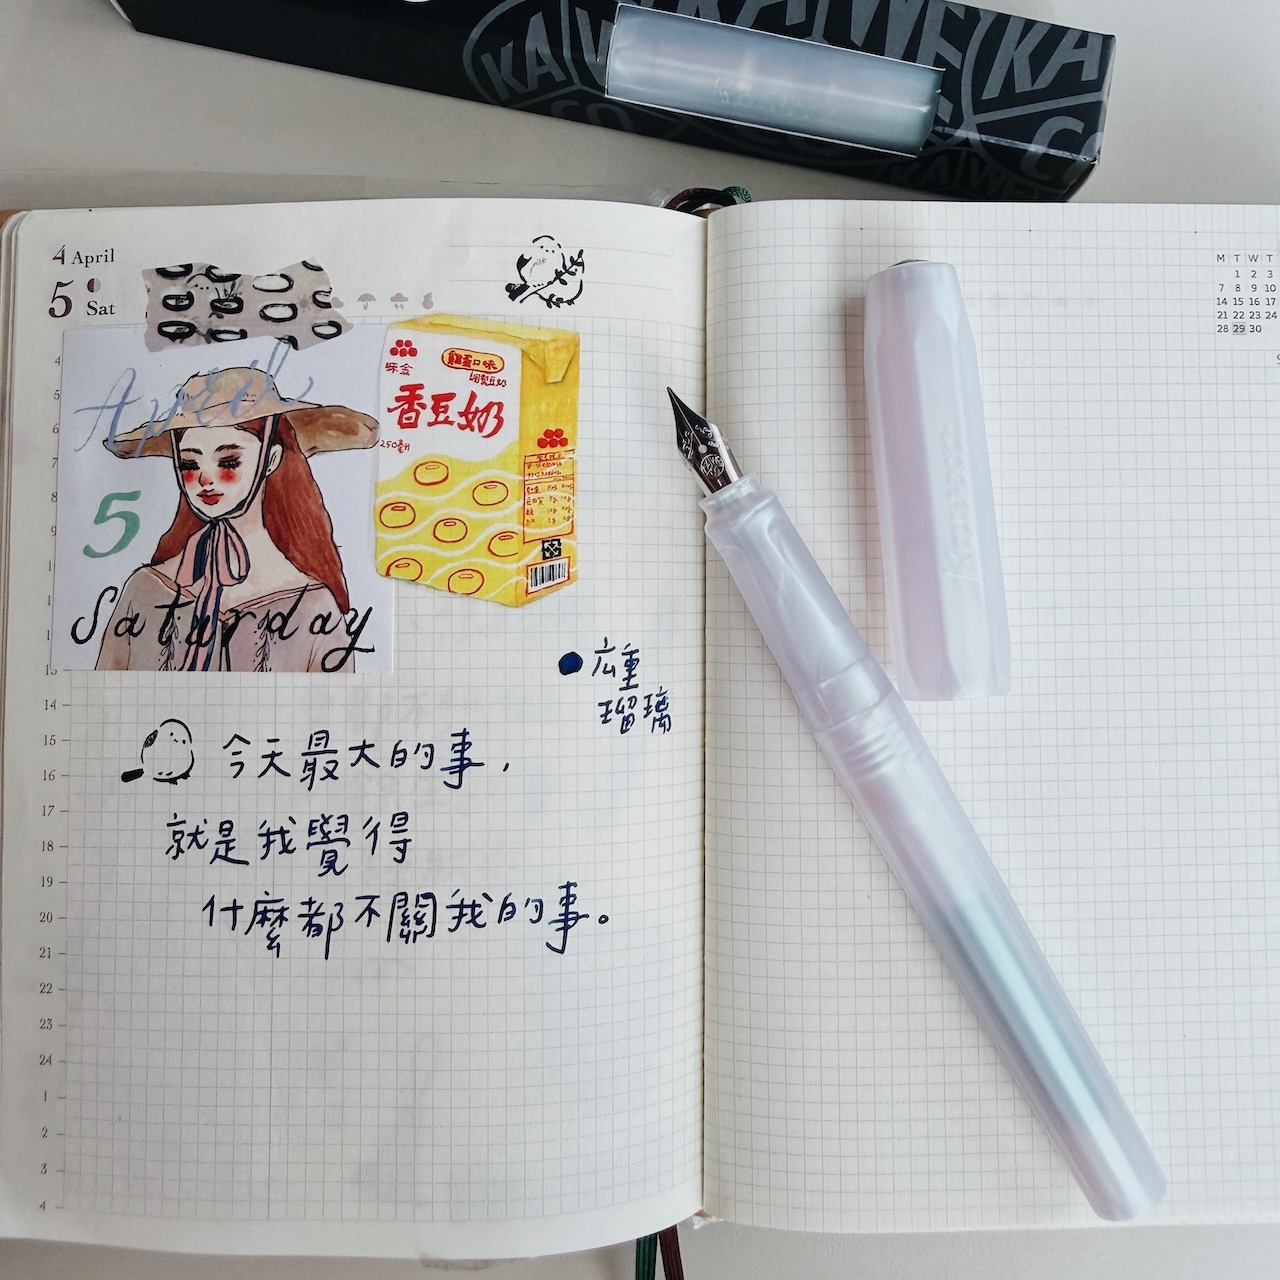 KAWE
KAWE
KA
CO
4 April
5 Sat
April
5
Saturday
味全
雞蛋口味
調製豆奶
香豆奶
250毫升
広重
瑠璃
今天最大的事,
就是我覺得
什麼都不關我的事。
M T W T
1 2 3
7 8 9 10
14 15 16 17
21 22 23 24
28 29 30
4
5
6
7
8
9
13
14
15
16
17
18
19
20
21
22
23
24
1
2
3
4